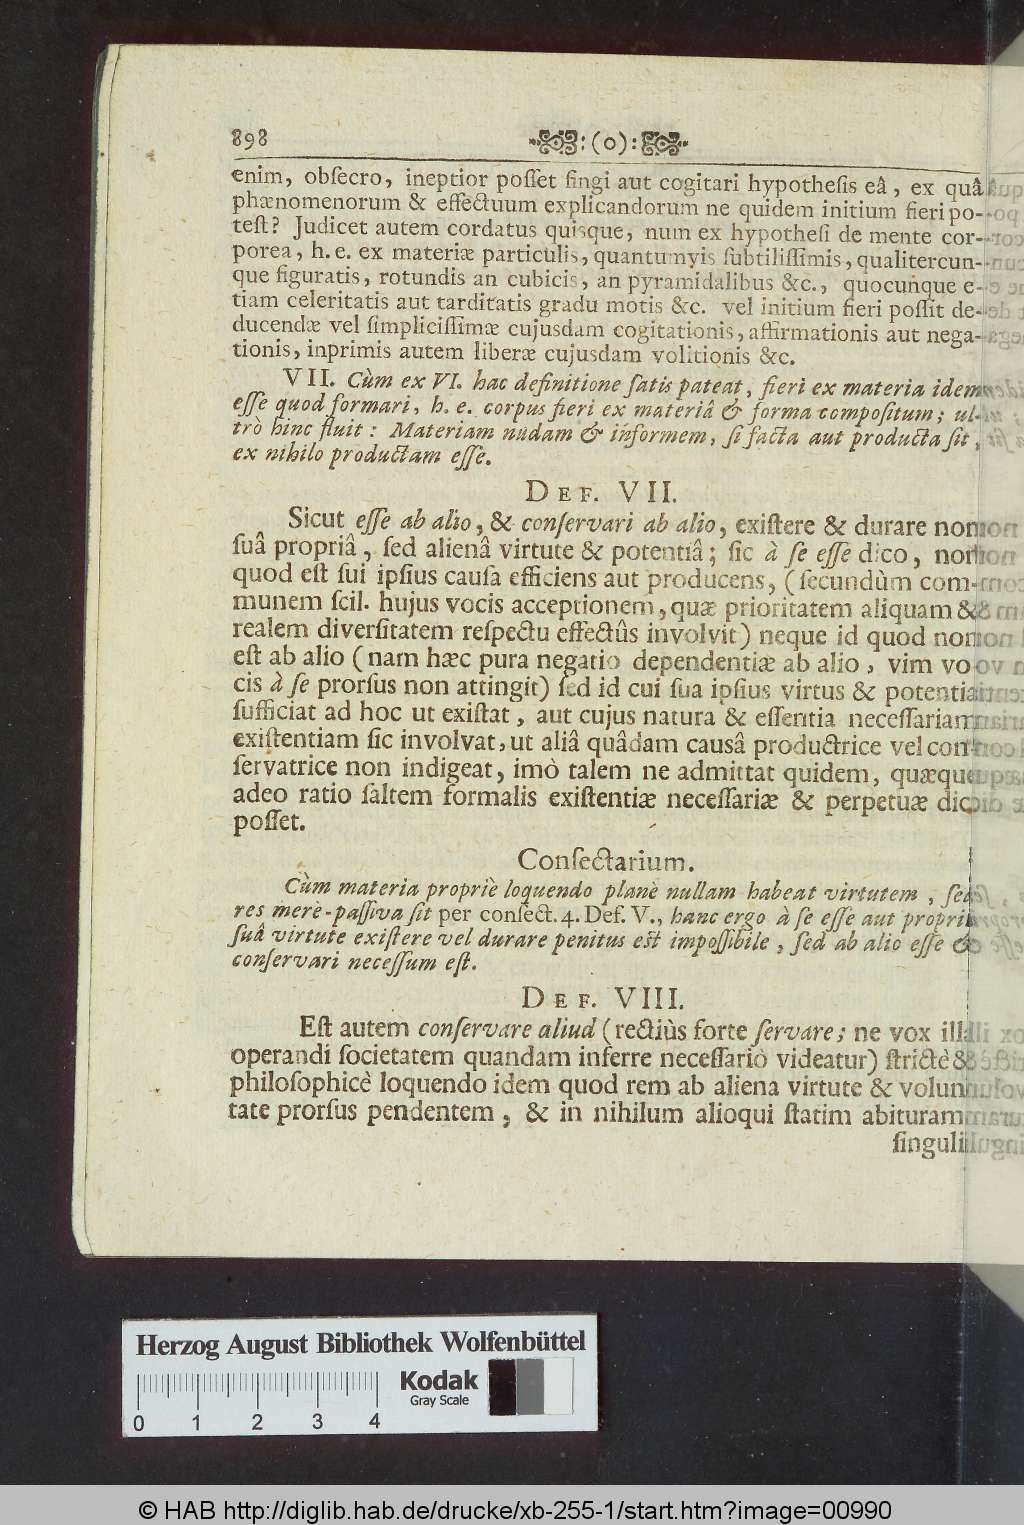 898 :(o):
enim, obſecro, ineptior poſſet fingi aut cogitari hypotheſis eâ, ex quâ
phænomenorum & effectuum explicandorum ne quidem initium fieri po-
teſt? Judicet autem cordatus quisque, num ex hypotheſi de mente cor-
porea, h. e. ex materiæ particulis, quantumvis ſubtiliſſimis, qualitercun-
que figuratis, rotundis an cubicis, an pyramidalibus &c., quocunque e-
tiam celeritatis aut tarditatis gradu motis &c. vel initium fieri poſſit de-
ducendæ vel ſimpliciſſimæ cujusdam cogitationis, affirmationis aut nega-
tionis, inprimis autem liberæ cujusdam volitionis &c.
VII. Cùm ex VI. hac definitione ſatis pateat, fieri ex materia idem
eſſe quod formari, h. e. corpus fieri ex materiâ & forma compoſitum; ul-
trò hinc fluit: Materiam nudam & informem, ſi facta aut producta ſit,
ex nihilo productam eſſe.
DEF. VII.
Sicut eſſe ab alio, & conſervari ab alio, exiſtere & durare non
ſuâ propriâ, ſed alienâ virtute & potentiâ; ſic à ſe eſſe dico, non
quod eſt ſui ipſius cauſa efficiens aut producens, (ſecundùm com-
munem ſcil. hujus vocis acceptionem, quæ prioritatem aliquam &
realem diverſitatem reſpectu effectûs involvit) neque id quod non
eſt ab alio (nam hæc pura negatio dependentiæ ab alio, vim vo
cis à ſe prorſus non attingit) ſed id cui ſua ipſius virtus & potentia
ſufficiat ad hoc ut exiſtat, aut cujus natura & eſſentia neceſſariam
exiſtentiam ſic involvat, ut aliâ quâdam causâ productrice vel con
ſervatrice non indigeat, imò talem ne admittat quidem, quæque
adeo ratio ſaltem formalis exiſtentiæ neceſſariæ & perpetuæ dici
poſſet.
Conſectarium.
Cùm materia propriè loquendo planè nullam habeat virtutem, ſed
res merè-paſſiva ſit per conſect. 4. Def. V., hanc ergo à ſe eſſe aut propriâ
ſuâ virtute exiſtere vel durare penitus eſt impoſſibile, ſed ab alio eſſe &
conſervari neceſſum eſt.
DEF. VIII.
Eſt autem conſervare aliud (rectiùs forte ſervare; ne vox illa
operandi ſocietatem quandam inferre neceſſariò videatur) ſtrictè &
philoſophicè loquendo idem quod rem ab aliena virtute & volun
tate prorſus pendentem, & in nihilum alioqui ſtatim abituram
ſinguli
Herzog August Bibliothek Wolfenbüttel
Kodak
Gray Scale
0 1 2 3 4
© HAB http://diglib.hab.de/drucke/xb-255-1/start.htm?image=00990